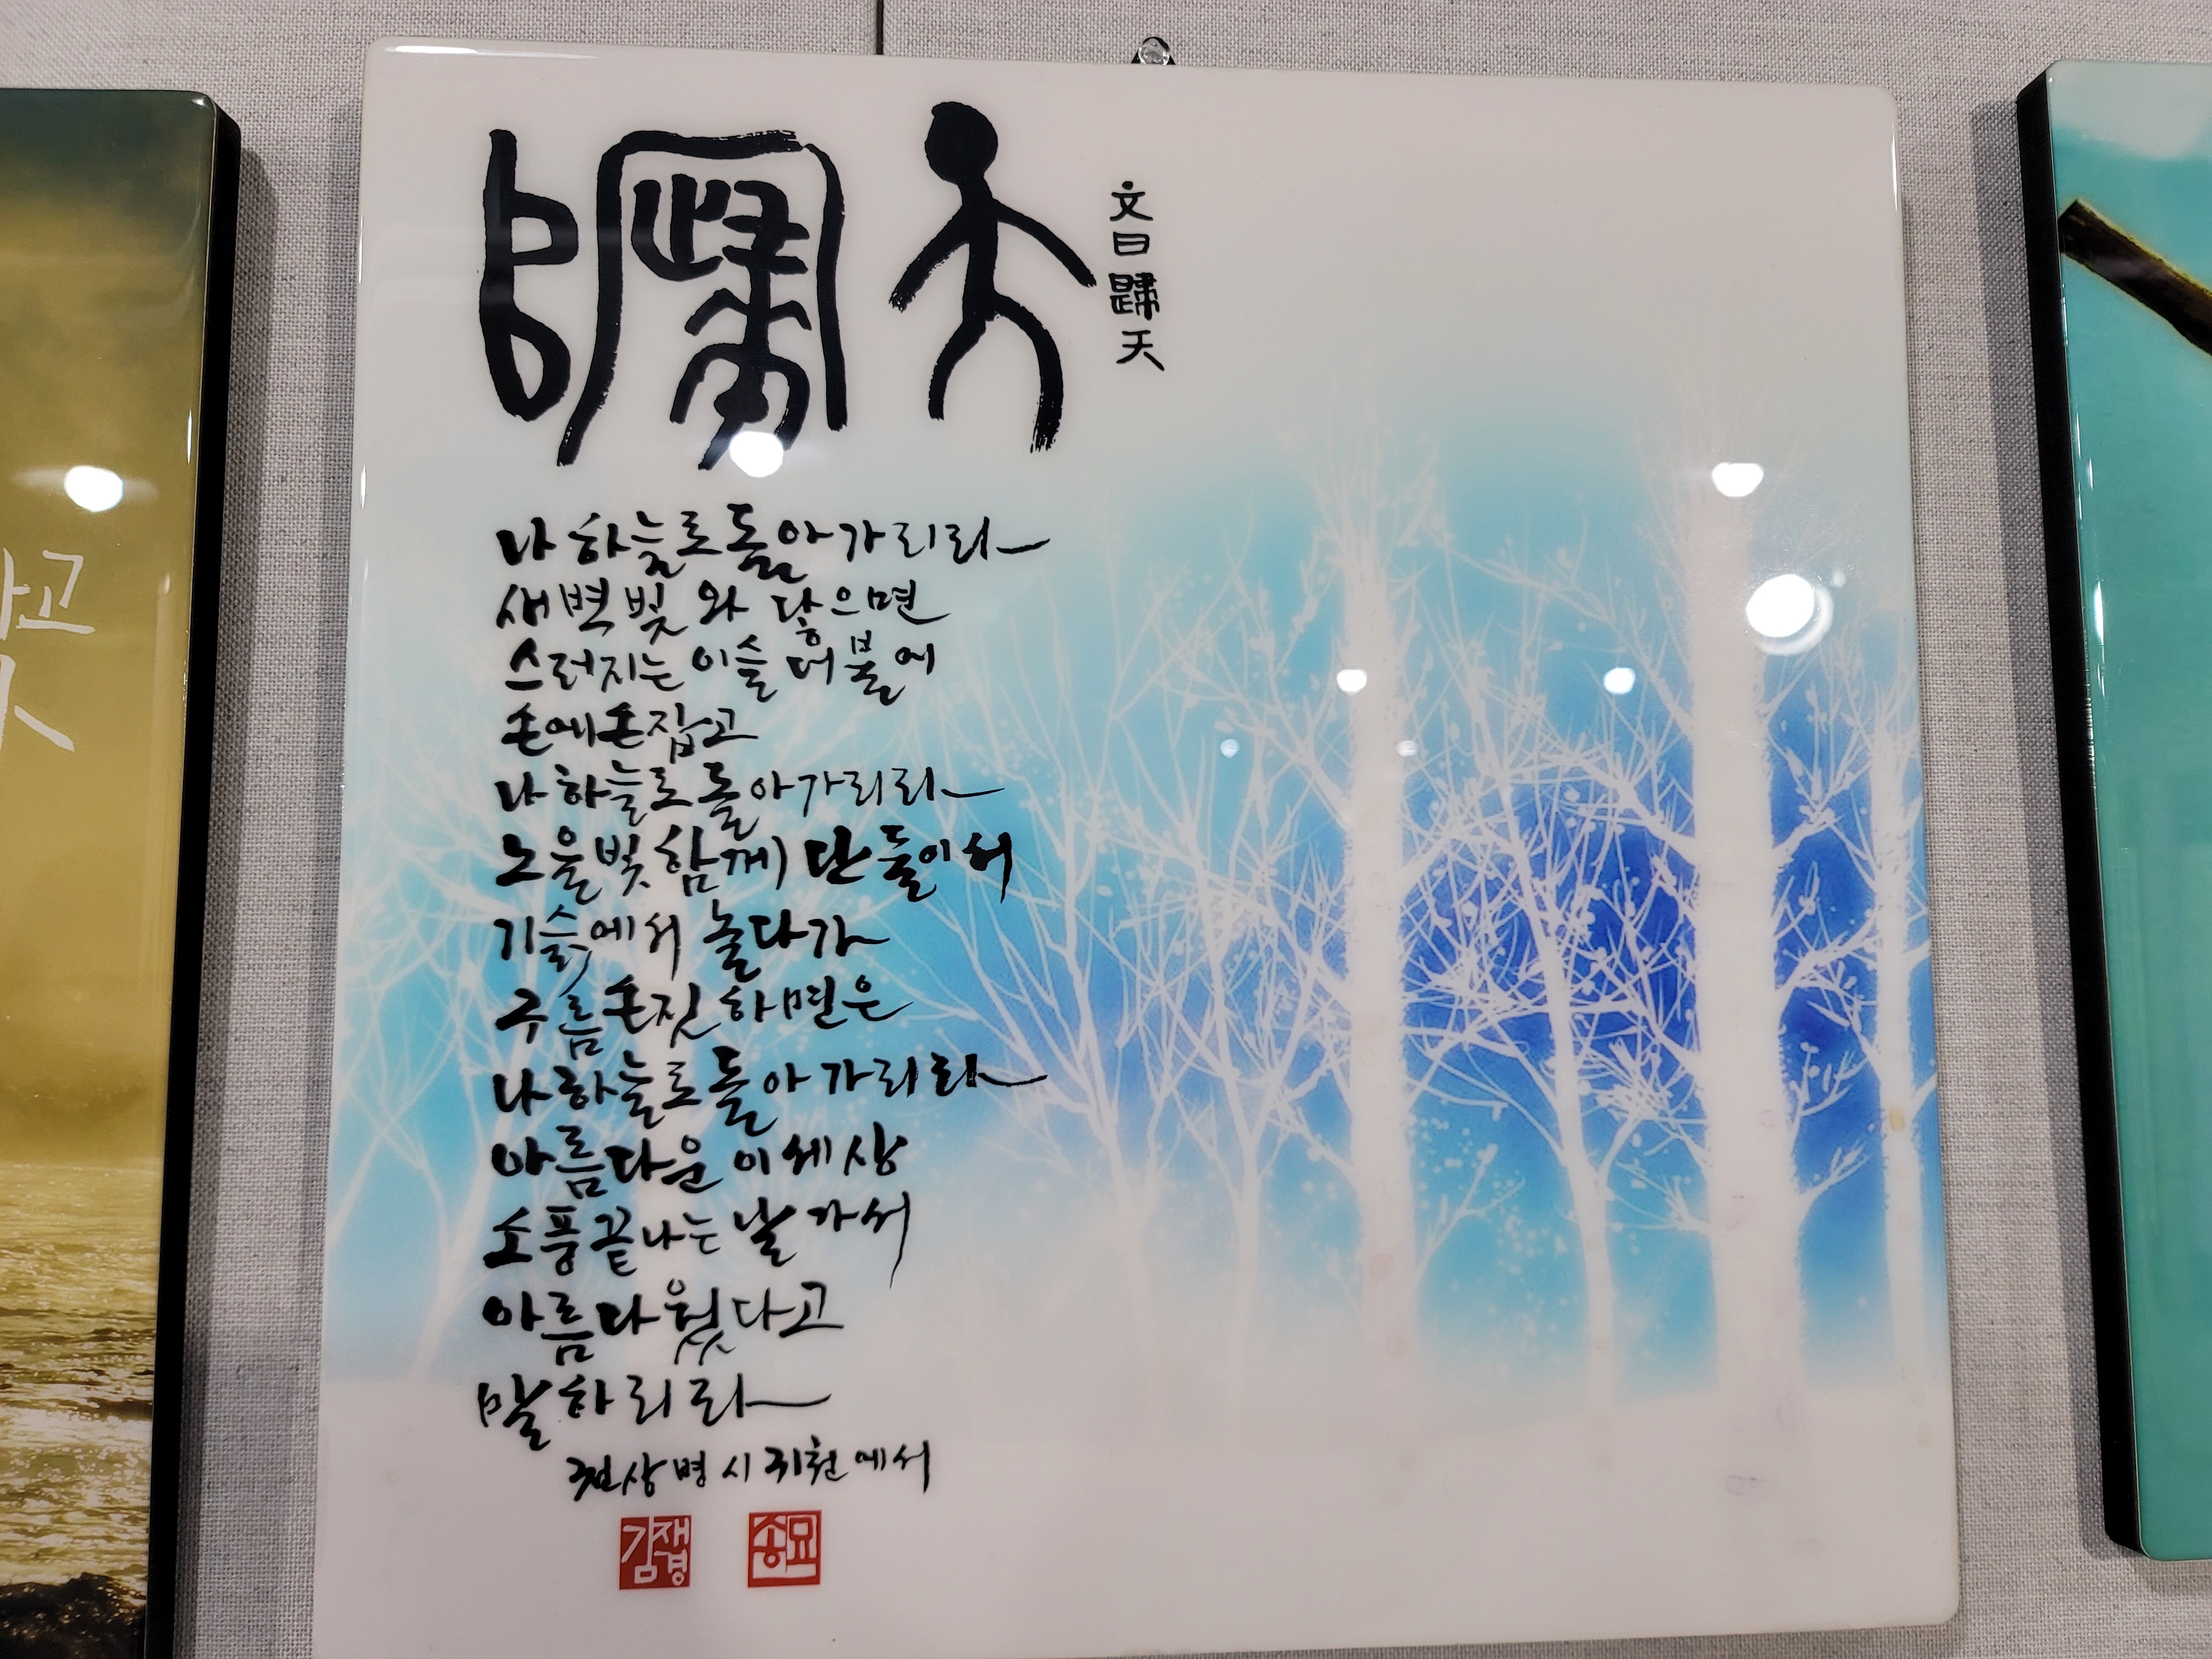 歸天
文曰歸天
나 하늘로 돌아가리라
새벽빛 와 닿으면
스러지는 이슬 더불에
손에 손잡고
나 하늘로 돌아가리라
노을빛 함께 단 둘이서
기슭에서 놀다가
구름 손짓하면은
나 하늘로 돌아가리라
아름다운 이 세상
소풍 끝나는 날 가서
아름다웠다고
말하리라
천상병 시 귀천에서
김재경
송묘